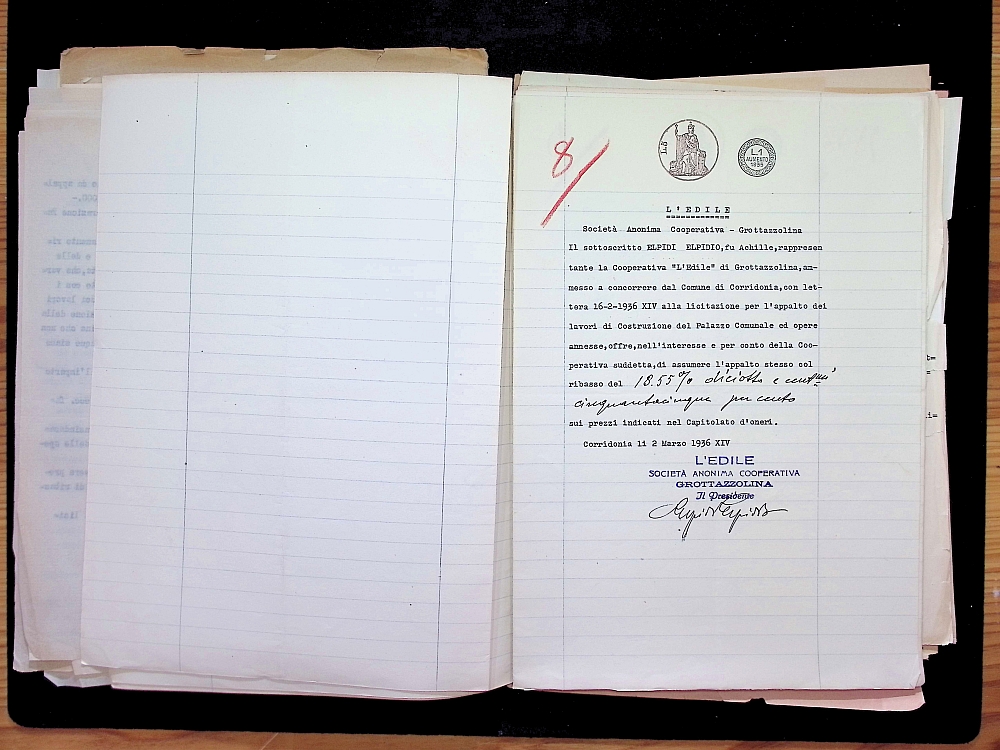 8
L.5
L.1
AUMENTO
1935
L'EDILE
Società Anonima Cooperativa - Grottazzolina
Il sottoscritto ELPIDI ELPIDIO,fu Achille,rappresen
tante la Cooperativa "L'Edile" di Grottazzolina,am-
messo a concorrere dal Comune di Corridonia,con let-
tera 16-2-1936 XIV alla licitazione per l'appalto dei
lavori di Costruzione del Palazzo Comunale ed opere
annesse,offre,nell'interesse e per conto della Coo-
perativa suddetta,di assumere l'appalto stesso col
ribasso del 18.55% diciotto e centmi
cinquantacinque per cento
sui prezzi indicati nel Capitolato d'oneri.
Corridonia li 2 Marzo 1936 XIV
L'EDILE
SOCIETÀ ANONIMA COOPERATIVA
GROTTAZZOLINA
Il Presidente
Elpidi Elpidio